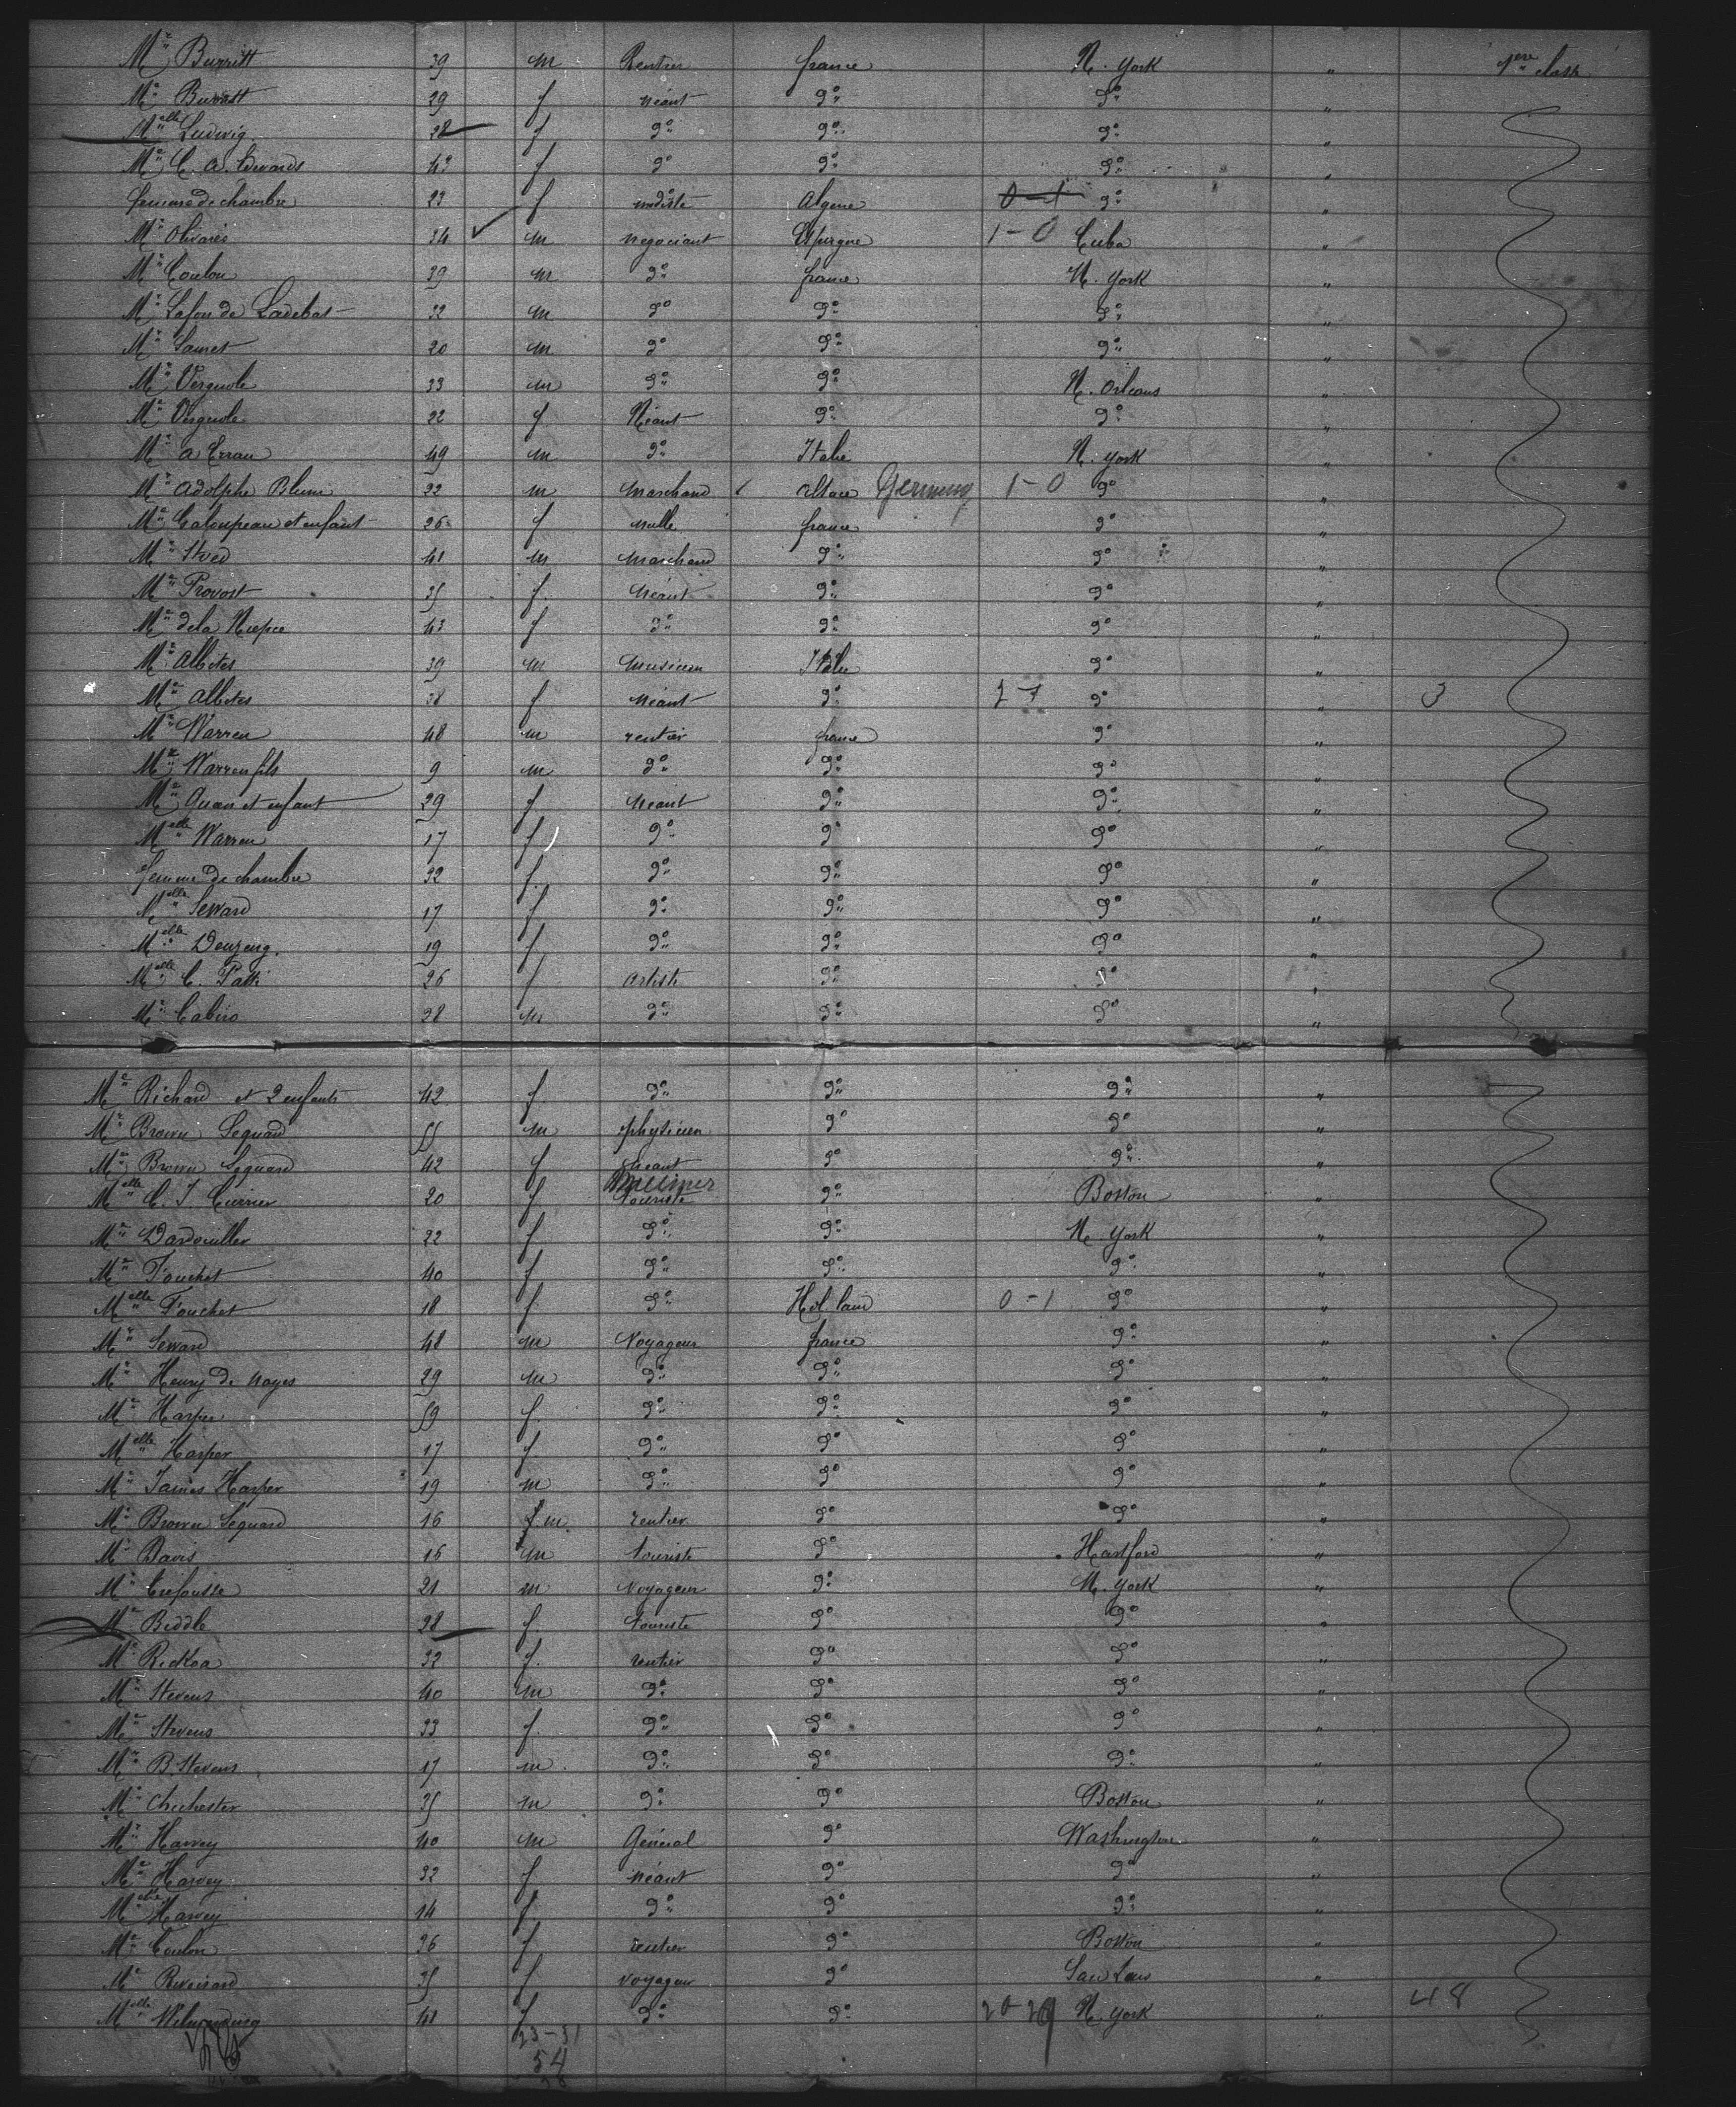 Mr Burritt 39 m Rentier france N. york " 1ere classe
Me Burritt 29 f néant do do "
Melle Ludwig 28 f do do do "
Me C. A. Edwards 43 f do do do "
femme de chambre 23 f modiste Algerie 0-1 do "
Mr Olivares 34 m negociant Espagne 1-0 Cuba "
Mr Coulon 39 m do france N. york "
Mr Lafon de Ladebat 32 m do do do "
Mr Samet 20 m do do do "
Mr Vergnole 33 m do do N. Orleans "
Me Vergnole 22 f Néant do do "
Mr A Erran 49 m do Italie N. york "
Mr Adolphe Blum 22 m Marchand alsace Germany 1-0 do "
Me Galoupeau et enfant 26 f nulle france do "
Mr 41 m marchand do do "
Me Provost 35 f Néant do do "
Me de la 43 f do do do "
Mr Albites 39 m musicien Italie do "
Me Albites 38 f néant do 2-1 do " 3
Mr Warren 48 m rentier france do "
Mr Warren fils 9 m do do do "
Me et enfant 29 f Néant do do "
Melle Warren 17 f do do do "
femme de chambre 32 f do do do "
Melle Seward 17 f do do do "
Melle 19 f do do do "
Melle C. Patti 26 f artiste do do "
Mr 28 m do do do "
Me Richard et 2 enfants 42 f do do do "
Mr Brown Sequard 55 m physicien do do "
Me Brown Sequard 42 f néant do do "
Melle C. J. Currier 20 f touriste Milliner do Boston "
Me 22 f do do N. york "
Me Fouchet 40 f do do do "
Melle Fouchet 18 f do Hol. land 0-1 do "
Mr Seward 48 m Voyageur france do "
Mr Henry de Noyes 29 m do do do "
Me Harper 59 f do do do "
Melle Harper 17 f do do do "
Mr James Harper 19 m do do do "
Mr Brown Sequard 16 f. m. rentier do do "
Mr Davis 16 m touriste do Hartford "
Mr Trefousse 21 m Voyageur do N. york "
Me Biddle 28 f touriste do do "
Me 32 f rentier do do "
Mr Stevens 40 m do do do "
Me Stevens 33 f do do do "
Mr B. Stevens 17 m do do do "
Mr Chichester 35 m do do Boston "
Mr Harvey 40 m Général do Washington "
Me Harvey 32 f néant do do "
Melle Harvey 14 f do do do "
Me Coulon 36 f rentier do Boston "
Me 35 f voyageur do San Louis "
Melle 41 f do do 20-29 N. york " 48
23-31
54